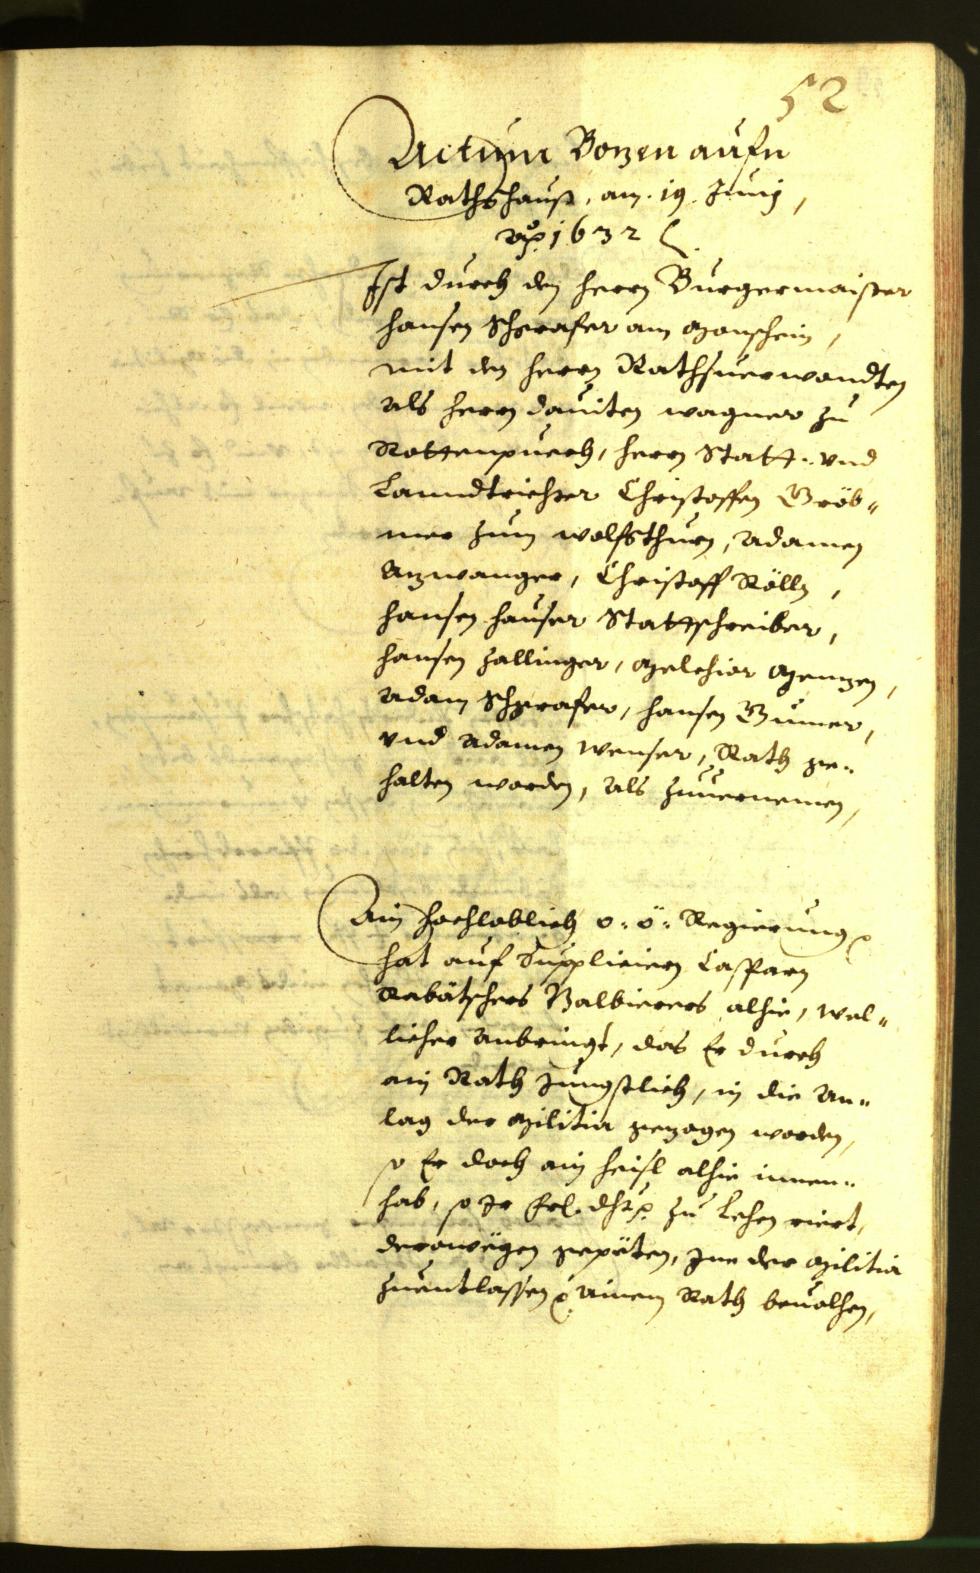 52
Actum Bozen aufn
Rathshauß, am 19 Junij,
1632
Ist durch den herrn Burgermaister
Hansen Schgrafer am Monschein,
mit den herrn Rathsuerwandten
als herrn dauiten wagner zu
Rottenpuech, herrn Statt- vnd
Lanndtrichter Christoffen Gröb-
mer zum wolfsthurn, Adamen
Azwanger, Christoff Rölln,
Hansen Hauser Stattschreiber,
Hansen Zallinger, Melchior Menzen,
Adam Schgrafer, Hansen Gumer,
vnd Adamen wenser, Rath ge-
halten worden, als zuuernemen,
Ain hochloblich o: ö: Regierung
hat auf Suppliciern Casparn
Rabätschers Balbierers alhie, wel-
licher anbringt, das Er durch
ain Rath jüngstlich, in die An-
lag der Militia gezogen worden,
so Er doch ain heisl alhie innen-
hab, so Ir frl. dht. zu Lehen riert,
derowegen gepäten, Jne der Militia
zuentlassen, Ainem Rath beuolhen,